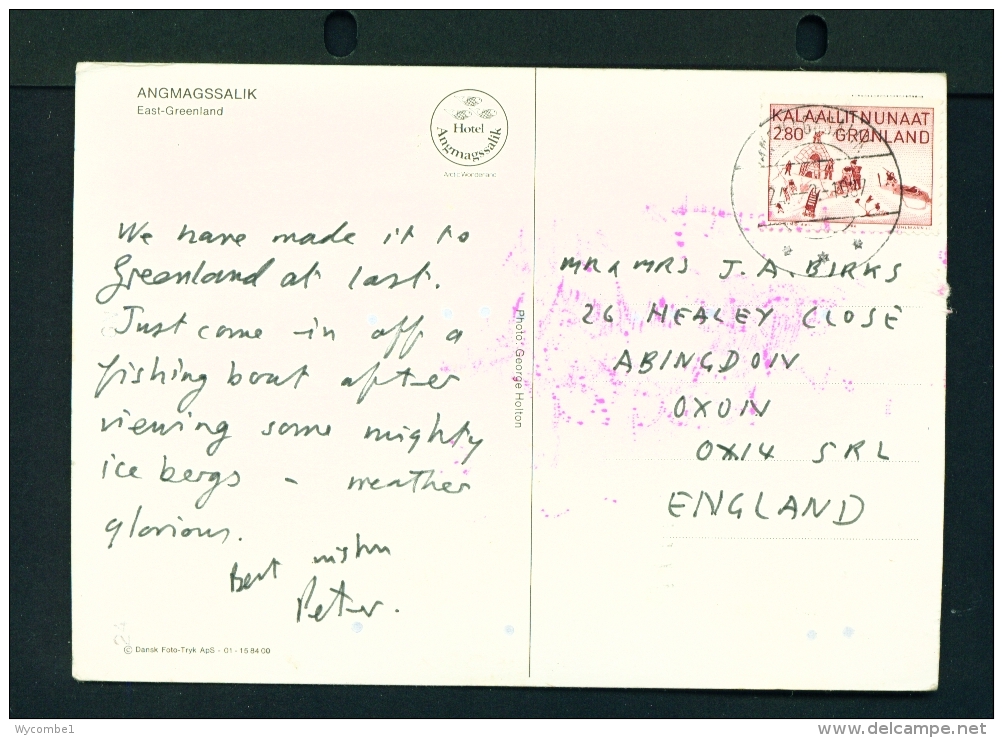 ANGMAGSSALIK
East-Greenland
Hotel
Angmagssalik
Arctic Wonderland
We have made it to
Greenland at last.
Just come in off a
fishing boat after
viewing some mighty
ice bergs - weather
glorious.
Best wishes
Peter.
© Dansk Foto-Tryk ApS - 01-15 84 00
Photo: George Holton
KALAALLIT NUNAAT
2.80 GRØNLAND
MR & MRS J. A. BIRKS
26 HEALEY CLOSE
ABINGDON
OXON
OX14 5RL
ENGLAND
Wycombe1
www.delcampe.net